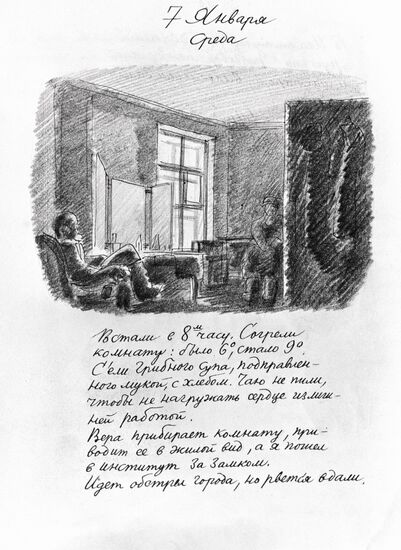 7 Января
Среда
Встали в 8м часу. Согрели
комнату: было 6°, стало 9°.
С'ем грибного супа, подправлен-
ного мукой, с хлебом. Чаю не пили,
чтобы не нагружать сердце излиш-
ней работой.
Вера прибирает комнату, при-
водит ее в жилой вид, а я пошел
в институт за замком.
Идет обстрел города, но рвется вдали.